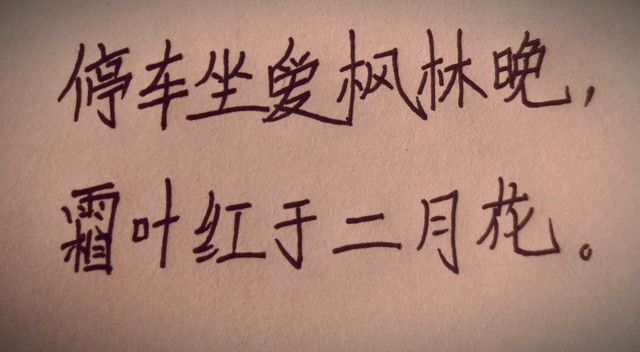 停车坐爱枫林晚，
霜叶红于二月花。